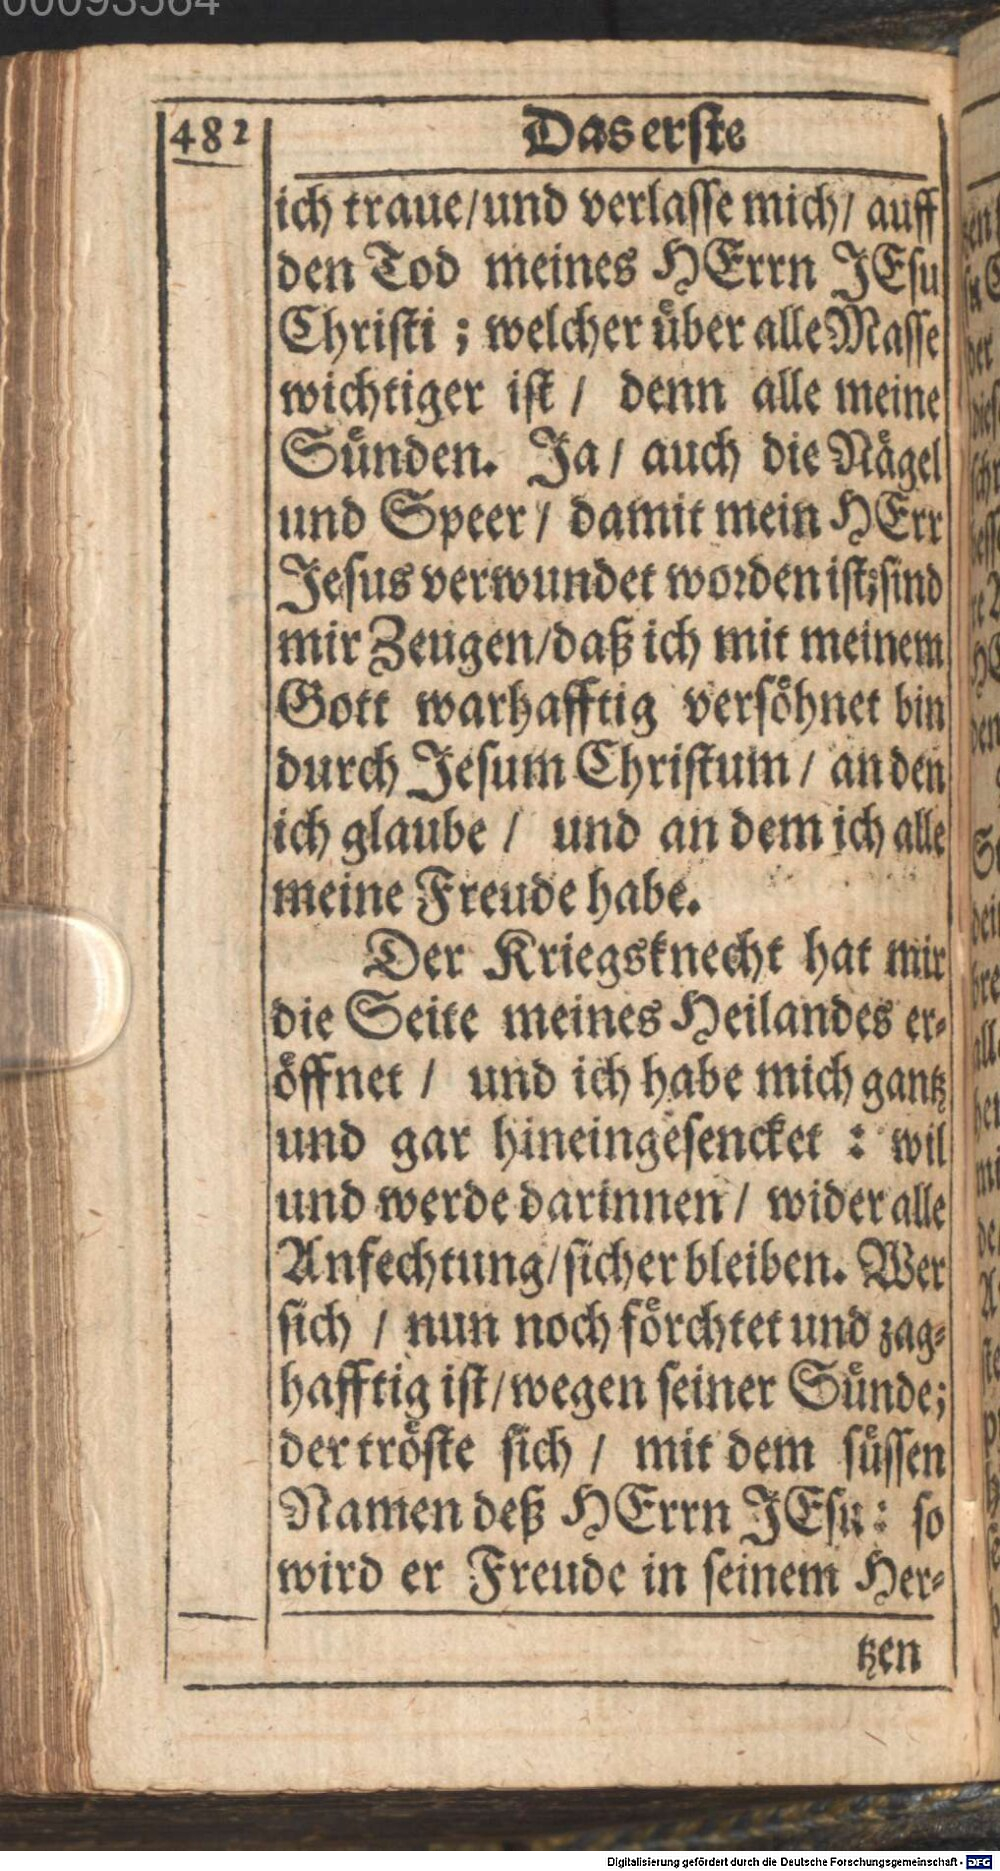 482
Das erste
ich traue/und verlasse mich/ auff
den Tod meines HErrn JEsu
Christi ; welcher uͤber alle Masse
wichtiger ist / denn alle meine
Suͤnden. Ja / auch die Naͤgel
und Speer / damit mein HErr
Jesus verwundet worden ist;sind
mir Zeugen/daß ich mit meinem
Gott warhafftig versoͤhnet bin
durch Jesum Christum / an den
ich glaube / und an dem ich alle
meine Freude habe.
Der Kriegsknecht hat mir
die Seite meines Heilandes er-
oͤffnet / und ich habe mich gantz
und gar hineingesencket : wil
und werde darinnen / wider alle
Anfechtung/sicher bleiben. Wer
sich / nun noch foͤrchtet und zag-
hafftig ist/wegen seiner Suͤnde;
der troͤste sich / mit dem suͤssen
Namen deß HErrn JEsu : so
wird er Freude in seinem Her-
tzen
Digitalisierung gefördert durch die Deutsche Forschungsgemeinschaft - DFG